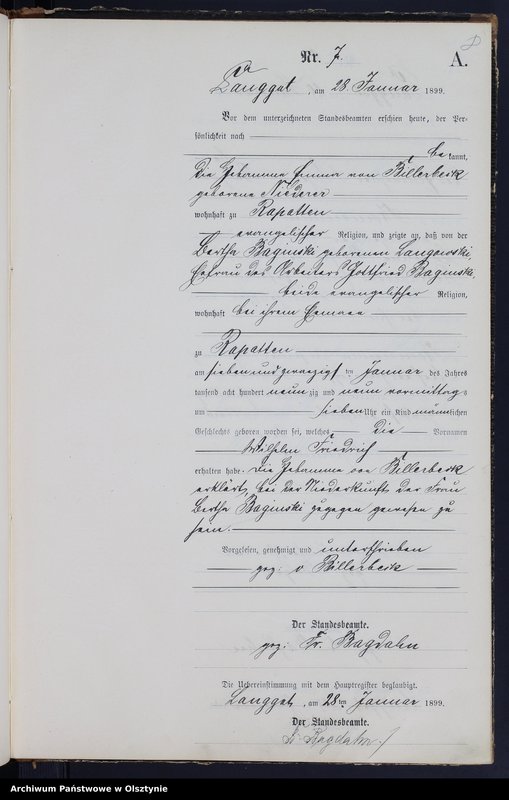 Nr. 7.
A.
Langgut, am 28. Januar 1899.
Vor dem unterzeichneten Standesbeamten erschien heute, der Per-
sönlichkeit nach
be kannt,
die Hebamme Emma von Billerbeck
geborene Niederer
wohnhaft zu Rapatten
evangelischer Religion, und zeigte an, daß von der
Bertha Baginski geborenen Langowski,
Ehefrau des Arbeiters Gottfried Baginski
beide evangelischer Religion,
wohnhaft bei ihrem Ehemann
zu Rapatten
am sieben und zwanzigsten Januar des Jahres
tausend acht hundert neunzig und neun vormittags
um sieben Uhr ein Kind männlichen
Geschlechts geboren worden sei, welches die Vornamen
Wilhelm Friedrich
erhalten habe. Die Hebamme von Billerbeck
erklärt, bei der Niederkunft der Frau
Bertha Baginski zugegen gewesen zu
sein.
Vorgelesen, genehmigt und unterschrieben
gez: v Billerbeck
Der Standesbeamte.
gez: Fr. Bagdahn
Die Uebereinstimmung mit dem Hauptregister beglaubigt.
Langgut, am 28ten Januar 1899.
Der Standesbeamte.
Fr. Bagdahn
Archiwum Państwowe w Olsztynie